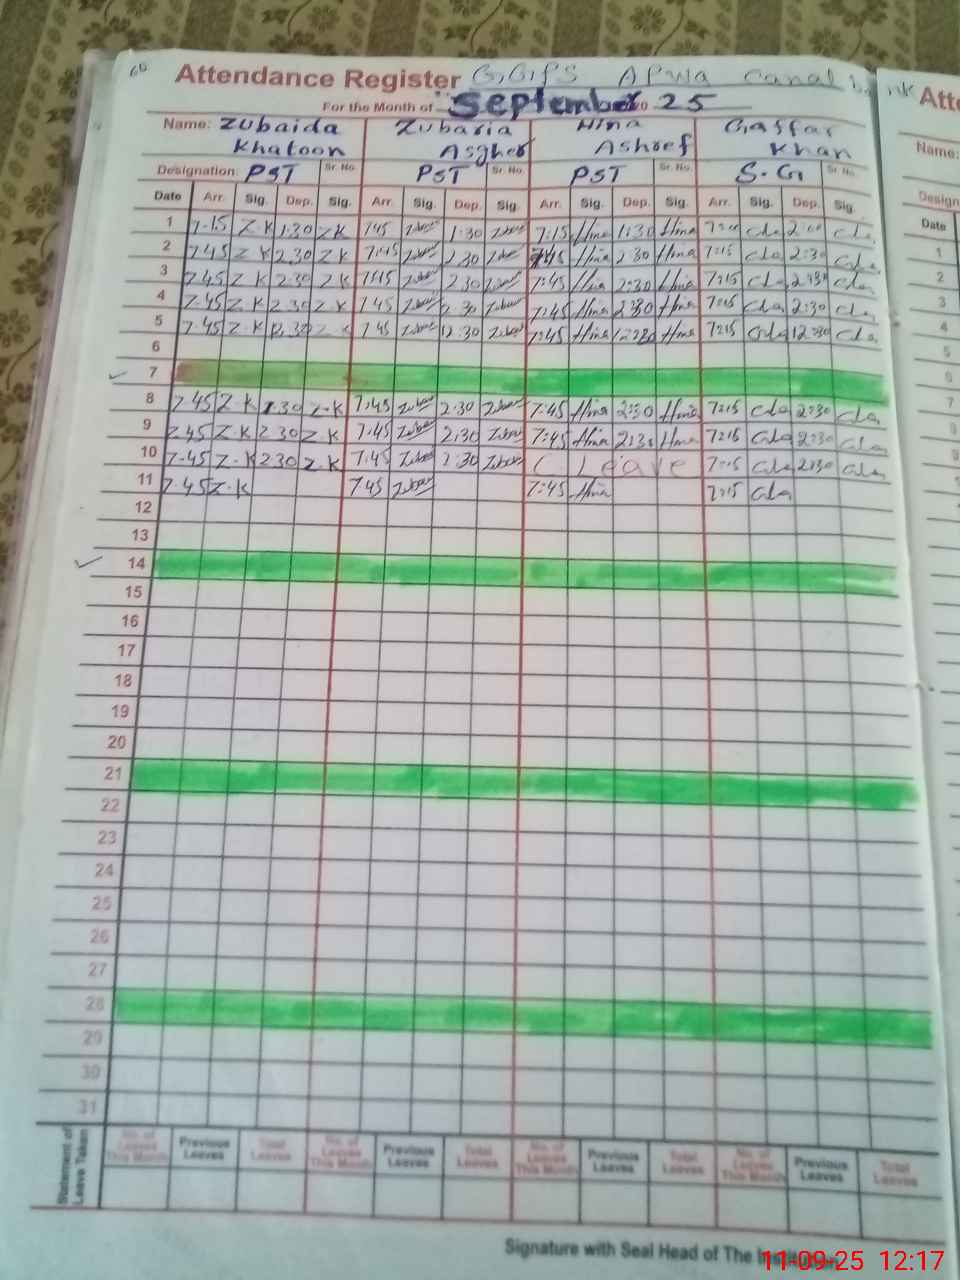 60
Attendance Register G.G.P.S APWA Canal
For the Month of September 20 25
Name: Zubaida Khatoon Zubaria Asgher Hina Ashref Gaffar Khan
Designation: PST Sr. No. PST Sr. No. PST Sr. No. S.G Sr. No.
Date Arr. Sig. Dep. Sig. Arr. Sig. Dep. Sig. Arr. Sig. Dep. Sig. Arr. Sig. Dep. Sig.
1 7.15 Z.K 1:30 ZK 7:45 1:30 7:15 Hina 1:30 Hina
2 7.45 Z K 2.30 ZK 7:45 2.30 7:45 Hina 2:30 Hina 7:15 2:30
3 7.45 Z K 2.30 ZK 7:45 2.30 7:45 Hina 2:30 Hina 7:15 2:30
4 7.45 Z.K 2.30 Z.K 7:45 2.30 7:45 Hina 2:30 Hina 7:15 2:30
5 7.45 Z.K 12.30 Z.K 7:45 12.30 7:45 Hina 12:30 Hina 7:15 12:30
6
7
8 7.45 Z.K 2.30 Z.K 7:45 2:30 7:45 Hina 2:30 Hina 7:15 2:30
9 7.45 Z.K 2.30 Z.K 7:45 2:30 7:45 Hina 2:30 Hina 7:15 2:30
10 7.45 Z.K 2.30 Z.K 7:45 2:30 C. Leave 7:15 2:30
11 7.45 Z.K 7:45 7:45 Hina 7:15
12
13
14
15
16
17
18
19
20
21
22
23
24
25
26
27
28
29
30
31
Statement of Leave Taken
No. of Leaves This Month Previous Leaves Total Leaves No. of Leaves This Month Previous Leaves Total Leaves No. of Leaves This Month Previous Leaves Total Leaves No. of Leaves This Month Previous Leaves Total Leaves
Signature with Seal Head of The Institution
11-09-25 12:17
Atte
Name:
Design
Date
1
2
3
4
5
6
7